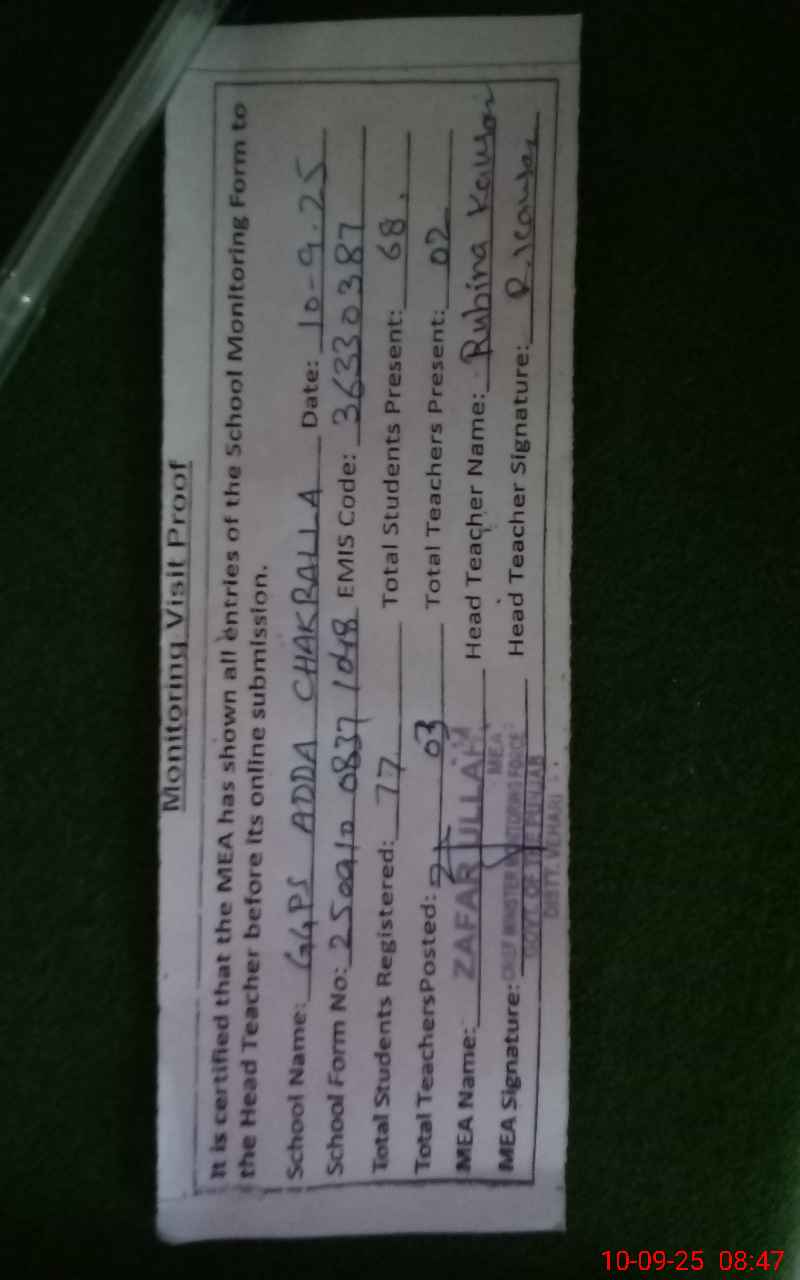 Monitoring Visit Proof
It is certified that the MEA has shown all entries of the School Monitoring Form to
the Head Teacher before its online submission.
School Name: GGPS ADDA CHAKRALLA Date: 10-9-25
School Form No: 250910 0837 1048 EMIS Code: 36330387
Total Students Registered: 77 Total Students Present: 68
Total TeachersPosted: 03 Total Teachers Present: 02
MEA Name: ZAFAR ULLAH Head Teacher Name: Rubina Kausar
MEA
MEA Signature: CHIEF MINISTER MONITORING FORCE Head Teacher Signature: R. Kausar
GOVT. OF THE PUNJAB
DISTT. VEHARI
10-09-25 08:47